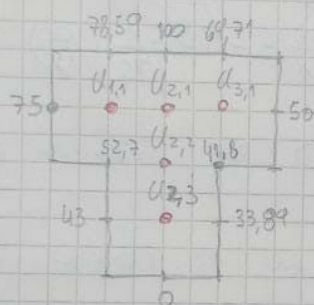 78,59 100 69,71
75 U1,1 U2,1 U3,1 50
52,7 U2,2 41,8
43 U2,3 33,89
0